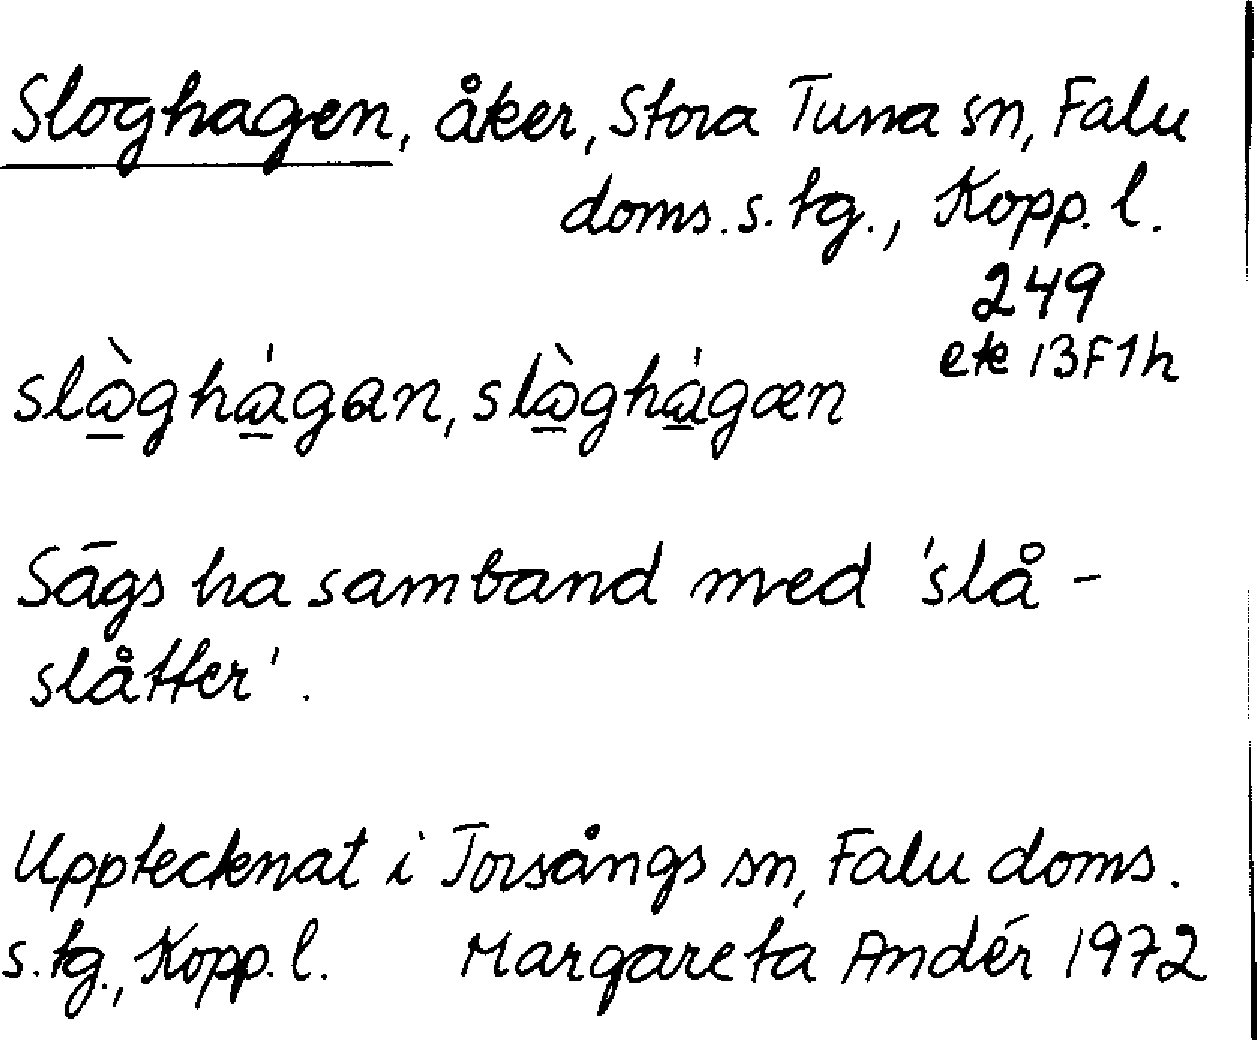 Sloghagen, åker, Stora Tuna sn, Falu
doms. s. tg., Kopp. l.
249
ek 13F1h
slòghágan, slòghágæn
Sägs ha samband med 'slå -
slåtter'.
Upptecknat i Torsångs sn, Falu doms.
s. tg., Kopp. l. Margareta Andér 1972